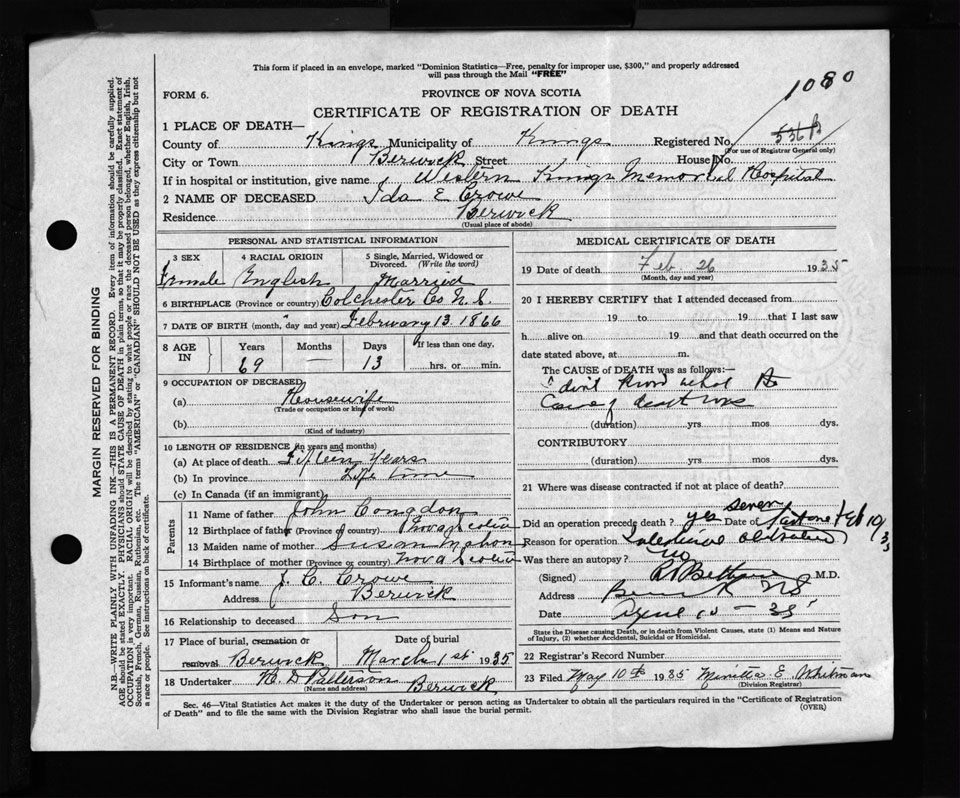 This form if placed in an envelope, marked "Dominion Statistics—Free, penalty for improper use, $300," and properly addressed
will pass through the Mail "FREE"
1080
FORM 6.
PROVINCE OF NOVA SCOTIA
CERTIFICATE OF REGISTRATION OF DEATH
1 PLACE OF DEATH—
County of Kings Municipality of Kings Registered No.
(For use of Registrar General only)
City or Town Berwick Street House No.
If in hospital or institution, give name Western Kings Memorial Hospital
2 NAME OF DECEASED Ida E Crowe
Residence Berwick
(Usual place of abode)
PERSONAL AND STATISTICAL INFORMATION
3 SEX 4 RACIAL ORIGIN 5 Single, Married, Widowed or Divorced. (Write the word)
Female English Married
6 BIRTHPLACE (Province or country) Colchester Co N.S.
7 DATE OF BIRTH (month, day and year) February 13 1866
8 AGE IN Years Months Days If less than one day.
69 — 13 hrs. or min.
9 OCCUPATION OF DECEASED
(a) Housewife
(Trade or occupation or kind of work)
(b)
(Kind of industry)
10 LENGTH OF RESIDENCE (in years and months)
(a) At place of death Fifteen Years
(b) In province Life time
(c) In Canada (if an immigrant)
Parents
11 Name of father John Congdon
12 Birthplace of father (Province or country) Nova Scotia
13 Maiden name of mother Susan Mahon
14 Birthplace of mother (Province or country) Nova Scotia
15 Informant's name J. C. Crowe
Address Berwick
16 Relationship to deceased Son
17 Place of burial, cremation or removal Berwick Date of burial March 1st 1935
18 Undertaker D Patterson Berwick
(Name and address)
MEDICAL CERTIFICATE OF DEATH
19 Date of death Feb 26 1935
(Month, day and year)
20 I HEREBY CERTIFY that I attended deceased from
19 to 19 that I last saw
h alive on 19 and that death occurred on the
date stated above, at m.
The CAUSE OF DEATH was as follows:—
I don't know what the
Cause of death was
(duration) yrs mos dys.
CONTRIBUTORY
(duration) yrs mos dys.
21 Where was disease contracted if not at place of death?
Did an operation precede death? yes seven Date of last one Feb 10/35
Reason for operation Intestinal obstruction
Was there an autopsy? no
(Signed) M.D.
Address Berwick NS
Date April 10 - 35
State the Disease causing Death, or in death from Violent Causes, state (1) Means and Nature
of Injury, (2) whether Accidental, Suicidal or Homicidal.
22 Registrar's Record Number
23 Filed May 10th 1935 Minetta E Whitman
(Division Registrar)
Sec. 46—Vital Statistics Act makes it the duty of the Undertaker or person acting as Undertaker to obtain all the particulars required in the "Certificate of Registration
of Death" and to file the same with the Division Registrar who shall issue the burial permit.
(OVER)
MARGIN RESERVED FOR BINDING
N.B.—WRITE PLAINLY WITH UNFADING INK—THIS IS A PERMANENT RECORD. Every item of information should be carefully supplied.
AGE should be stated EXACTLY. PHYSICIANS should STATE CAUSE OF DEATH in plain terms, so that it may be properly classified. Exact statement of
OCCUPATION is very important. RACIAL ORIGIN will be described by stating to what people or race the deceased person belonged, whether English, Irish,
Scottish, French, German, Russian, Ruthenian, etc. The terms "AMERICAN" or "CANADIAN" SHOULD NOT BE USED as they express citizenship but not
a race or people. See instructions on back of certificate.